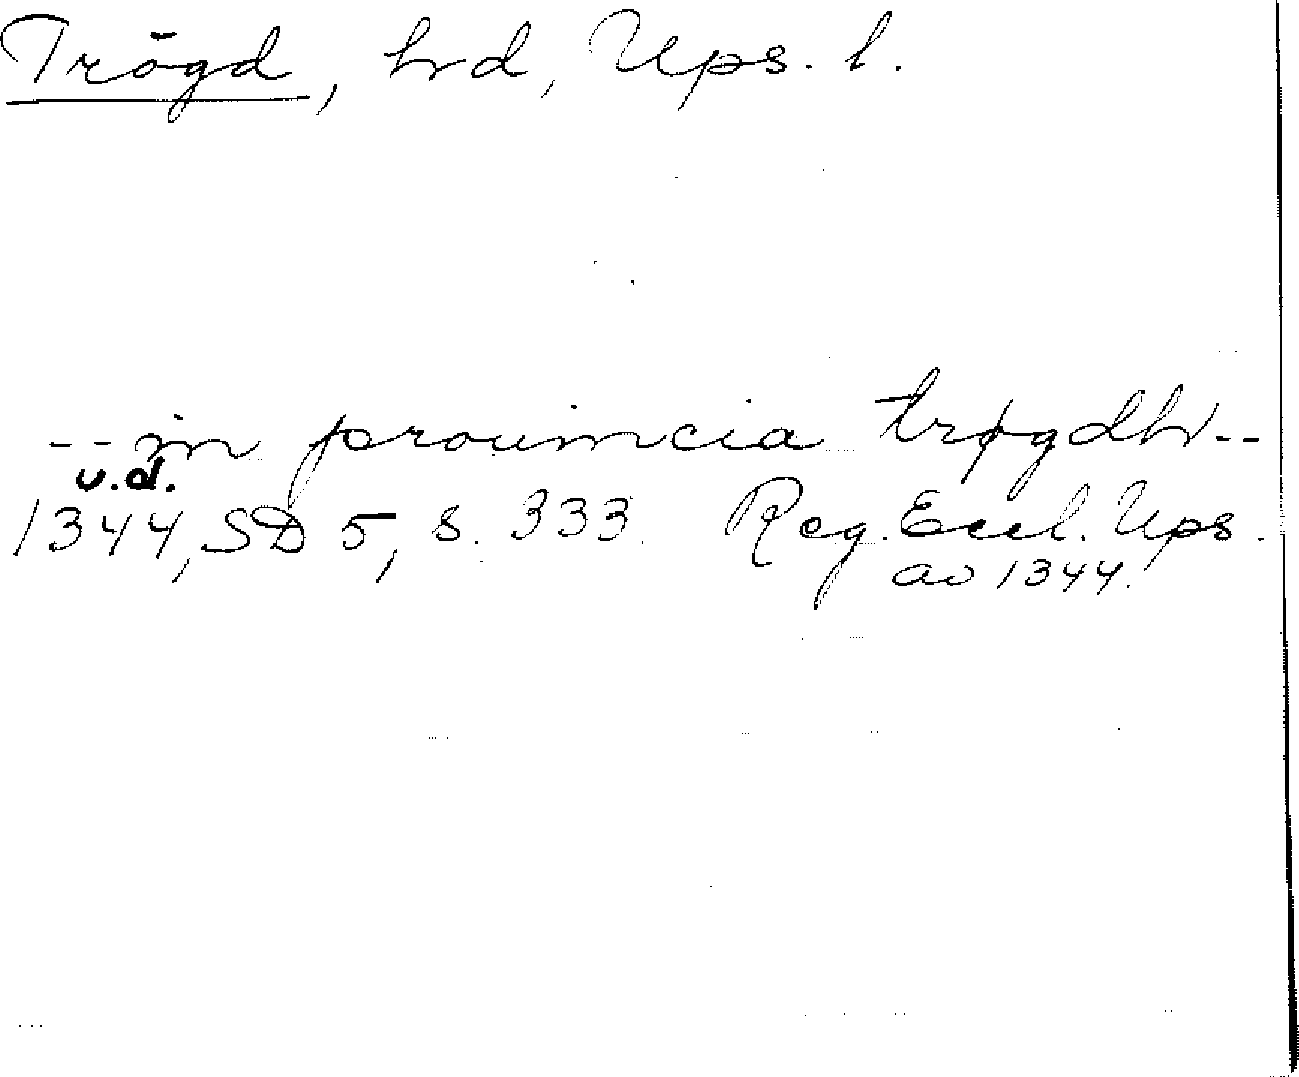 Trögd, hrd, Ups. l.
-- in prouincia trøgdh --
u.d.
1344, SD 5, s. 333. Reg. Eccl. Ups.
av 1344.